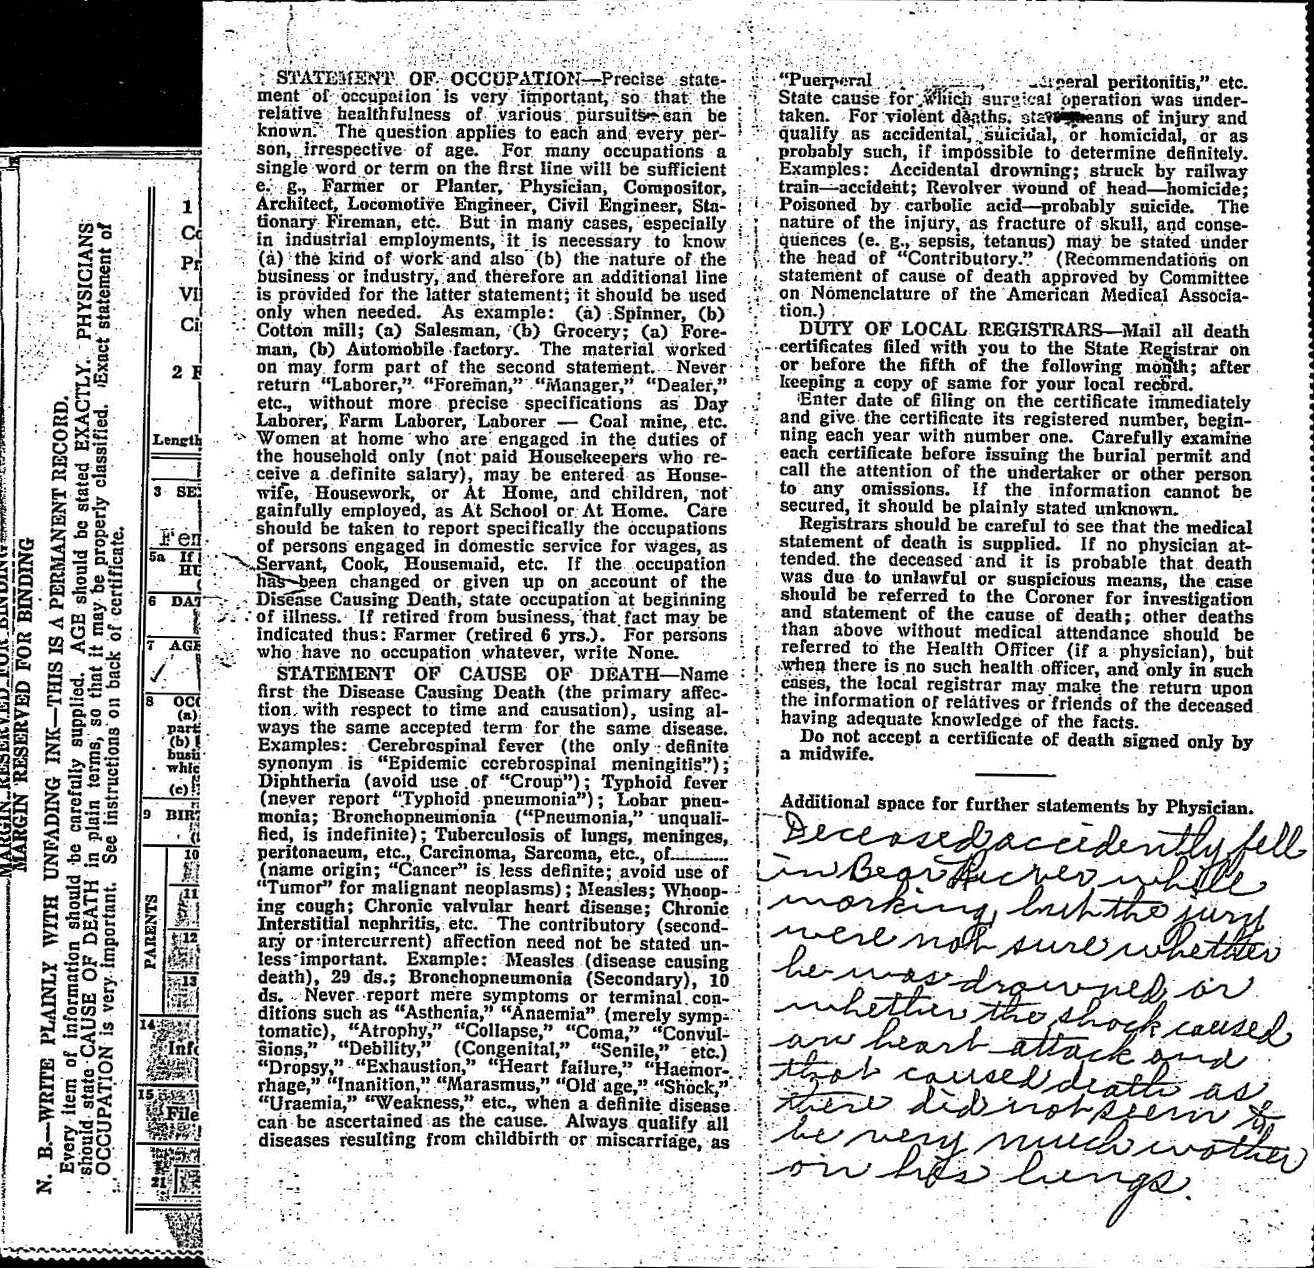 MARGIN RESERVED FOR BINDING
MARGIN RESERVED FOR BINDING
N. B.—WRITE PLAINLY WITH UNFADING INK—THIS IS A PERMANENT RECORD.
Every item of information should be carefully supplied. AGE should be stated EXACTLY. PHYSICIANS
should state CAUSE OF DEATH in plain terms, so that it may be properly classified. Exact statement of
OCCUPATION is very important. See instructions on back of certificate.
1
Co
Pr
Vil
Ci
2 F
Length
3 SE
Fem
5a If
HU
6 DA
7 AGE
8 OCC
(a)
part
(b)
busi
whic
(c)
9 BIR
PARENTS
10
11
12
13
14
Info
15
File
21
STATEMENT OF OCCUPATION—Precise state-
ment of occupation is very important, so that the
relative healthfulness of various pursuits can be
known. The question applies to each and every per-
son, irrespective of age. For many occupations a
single word or term on the first line will be sufficient
e. g., Farmer or Planter, Physician, Compositor,
Architect, Locomotive Engineer, Civil Engineer, Sta-
tionary Fireman, etc. But in many cases, especially
in industrial employments, it is necessary to know
(a) the kind of work and also (b) the nature of the
business or industry, and therefore an additional line
is provided for the latter statement; it should be used
only when needed. As example: (a) Spinner, (b)
Cotton mill; (a) Salesman, (b) Grocery; (a) Fore-
man, (b) Automobile factory. The material worked
on may form part of the second statement. Never
return "Laborer," "Foreman," "Manager," "Dealer,"
etc., without more precise specifications as Day
Laborer, Farm Laborer, Laborer — Coal mine, etc.
Women at home who are engaged in the duties of
the household only (not paid Housekeepers who re-
ceive a definite salary), may be entered as House-
wife, Housework, or At Home, and children, not
gainfully employed, as At School or At Home. Care
should be taken to report specifically the occupations
of persons engaged in domestic service for wages, as
Servant, Cook, Housemaid, etc. If the occupation
has been changed or given up on account of the
Disease Causing Death, state occupation at beginning
of illness. If retired from business, that fact may be
indicated thus: Farmer (retired 6 yrs.). For persons
who have no occupation whatever, write None.
STATEMENT OF CAUSE OF DEATH—Name
first the Disease Causing Death (the primary affec-
tion with respect to time and causation), using al-
ways the same accepted term for the same disease.
Examples: Cerebrospinal fever (the only definite
synonym is "Epidemic cerebrospinal meningitis");
Diphtheria (avoid use of "Croup"); Typhoid fever
(never report "Typhoid pneumonia"); Lobar pneu-
monia; Bronchopneumonia ("Pneumonia," unquali-
fied, is indefinite); Tuberculosis of lungs, meninges,
peritonaeum, etc., Carcinoma, Sarcoma, etc., of..........
(name origin; "Cancer" is less definite; avoid use of
"Tumor" for malignant neoplasms); Measles; Whoop-
ing cough; Chronic valvular heart disease; Chronic
Interstitial nephritis, etc. The contributory (second-
ary or intercurrent) affection need not be stated un-
less important. Example: Measles (disease causing
death), 29 ds.; Bronchopneumonia (Secondary), 10
ds. Never report mere symptoms or terminal con-
ditions such as "Asthenia," "Anaemia" (merely symp-
tomatic), "Atrophy," "Collapse," "Coma," "Convul-
sions," "Debility," (Congenital," "Senile," etc.)
"Dropsy," "Exhaustion," "Heart failure," "Haemor-
rhage," "Inanition," "Marasmus," "Old age," "Shock,"
"Uraemia," "Weakness," etc., when a definite disease
can be ascertained as the cause. Always qualify all
diseases resulting from childbirth or miscarriage, as
"Puerperal peritonitis," etc.
State cause for which surgical operation was under-
taken. For violent deaths, state means of injury and
qualify as accidental, suicidal, or homicidal, or as
probably such, if impossible to determine definitely.
Examples: Accidental drowning; struck by railway
train—accident; Revolver wound of head—homicide;
Poisoned by carbolic acid—probably suicide. The
nature of the injury, as fracture of skull, and conse-
quences (e. g., sepsis, tetanus) may be stated under
the head of "Contributory." (Recommendations on
statement of cause of death approved by Committee
on Nomenclature of the American Medical Associa-
tion.)
DUTY OF LOCAL REGISTRARS—Mail all death
certificates filed with you to the State Registrar on
or before the fifth of the following month; after
keeping a copy of same for your local record.
Enter date of filing on the certificate immediately
and give the certificate its registered number, begin-
ning each year with number one. Carefully examine
each certificate before issuing the burial permit and
call the attention of the undertaker or other person
to any omissions. If the information cannot be
secured, it should be plainly stated unknown.
Registrars should be careful to see that the medical
statement of death is supplied. If no physician at-
tended the deceased and it is probable that death
was due to unlawful or suspicious means, the case
should be referred to the Coroner for investigation
and statement of the cause of death; other deaths
than above without medical attendance should be
referred to the Health Officer (if a physician), but
when there is no such health officer, and only in such
cases, the local registrar may make the return upon
the information of relatives or friends of the deceased
having adequate knowledge of the facts.
Do not accept a certificate of death signed only by
a midwife.
Additional space for further statements by Physician.
Deceased accidently fell
in Bear River while
working, but the jury
were not sure whether
he was drowned or
whether the shock caused
an heart attack and
that caused death as
there did not seem to
be very much wather
on his lungs.